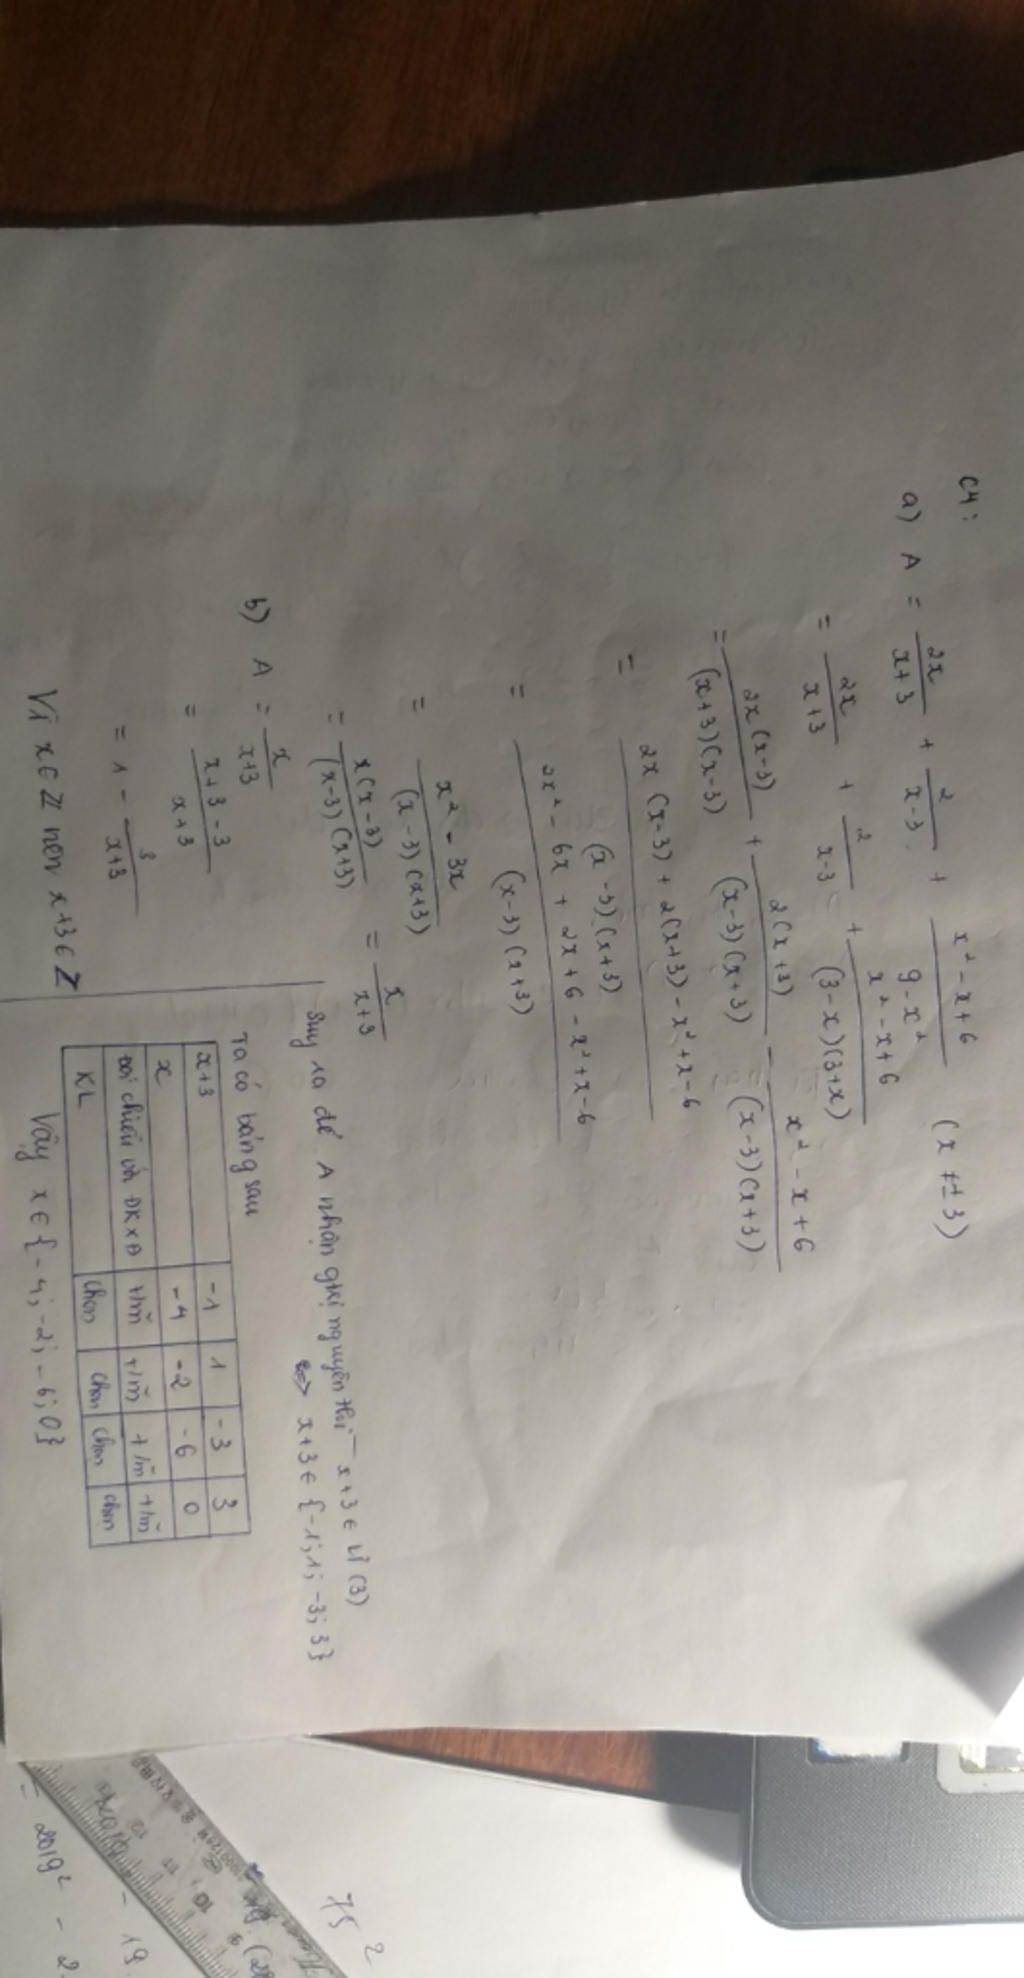 C4:
a) A = 2x/(x+3) + 2/(x-3) + (x² - x + 6)/(9 - x²) (x ≠ ±3)
= 2x/(x+3) + 2/(x-3) + (x² - x + 6)/((3-x)(3+x))
= 2x(x-3)/((x+3)(x-3)) + 2(x+3)/((x-3)(x+3)) - (x² - x + 6)/((x-3)(x+3))
= (2x(x-3) + 2(x+3) - x² + x - 6)/((x-3)(x+3))
= (2x² - 6x + 2x + 6 - x² + x - 6)/((x-3)(x+3))
= (x² - 3x)/((x-3)(x+3))
= x(x-3)/((x-3)(x+3)) = x/(x+3)
b) A = x/(x+3)
= (x+3-3)/(x+3)
= 1 - 3/(x+3)
Vì x ∈ Z nên x+3 ∈ Z
Suy ra để A nhận giá trị nguyên thì x+3 ∈ Ư(3)
<=> x+3 ∈ {-1; 1; -3; 3}
Ta có bảng sau
x+3 -1 1 -3 3
x -4 -2 -6 0
Đối chiếu với ĐKXĐ t/m t/m t/m t/m
KL Chọn Chọn Chọn Chọn
Vậy x ∈ {-4; -2; -6; 0}
75²
- 19
= 2019² - 2